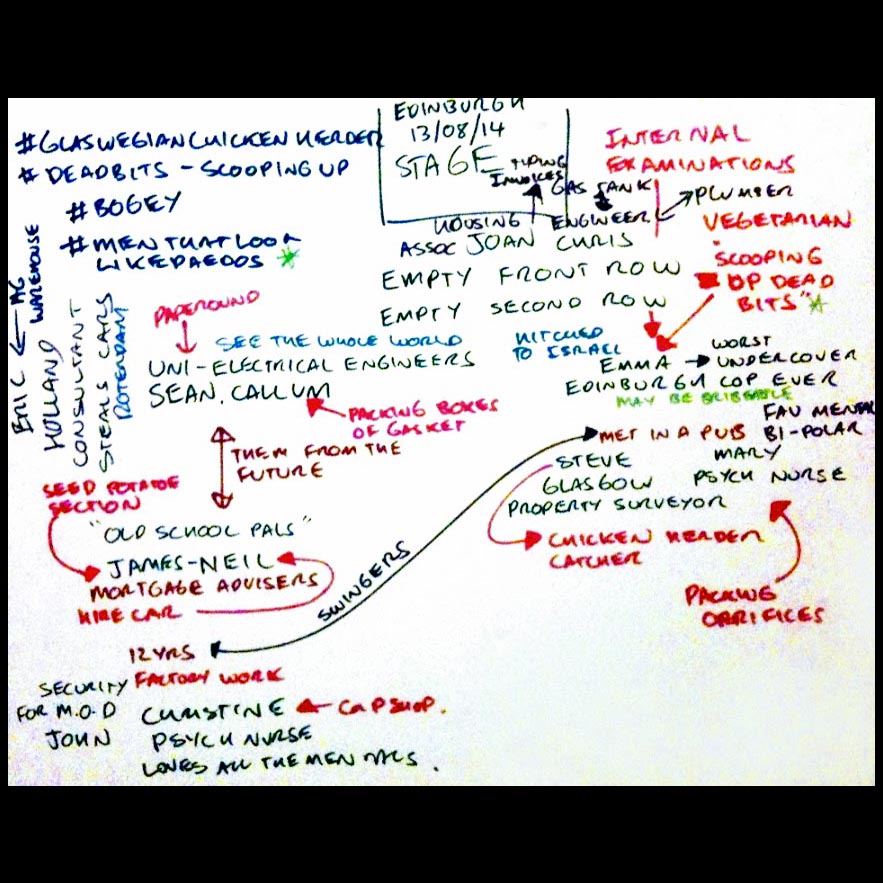 EDINBURGH
13/08/14
STAGE
TYPING
INVOICES
GAS TANK
PLUMBER
HOUSING
ASSOC
ENGINEER
JOAN CHRIS
EMPTY FRONT ROW
EMPTY SECOND ROW
INTERNAL
EXAMINATIONS
VEGETARIAN
"SCOOPING
UP DEAD
BITS"
#GLASWEGIANCHICKENHERDER
#DEADBITS - SCOOPING UP
#BOGEY
#MENTHATLOOK
LIKEPAEDOS
ERIC
WAREHOUSE
HOLLAND
CONSULTANT
STEALS CARS
ROTERDAM
PAPEROUND
SEE THE WHOLE WORLD
UNI-ELECTRICAL ENGINEERS
SEAN. CALLUM
PACKING BOXES
OF GASKET
HITCHED
TO ISRAEL
EMMA
EDINBURGH
WORST
UNDERCOVER
COP EVER
MAY BE BRIBEABLE
THEM FROM THE
FUTURE
MET IN A PUB
STEVE
GLASGOW
PROPERTY SURVEYOR
FAV MENTAL
BI-POLAR
MARY
PSYCH NURSE
CHICKEN HERDER
CATCHER
PACKING
ORRIFICES
SEED POTATOE
SECTION
"OLD SCHOOL PALS"
JAMES-NEIL
MORTGAGE ADVISERS
HIRE CAR
SWINGERS
12YRS
FACTORY WORK
SECURITY
FOR M.O.D
JOHN
CHRISTINE
CAP SHOP.
PSYCH NURSE
LOVES ALL THE MENTALS.